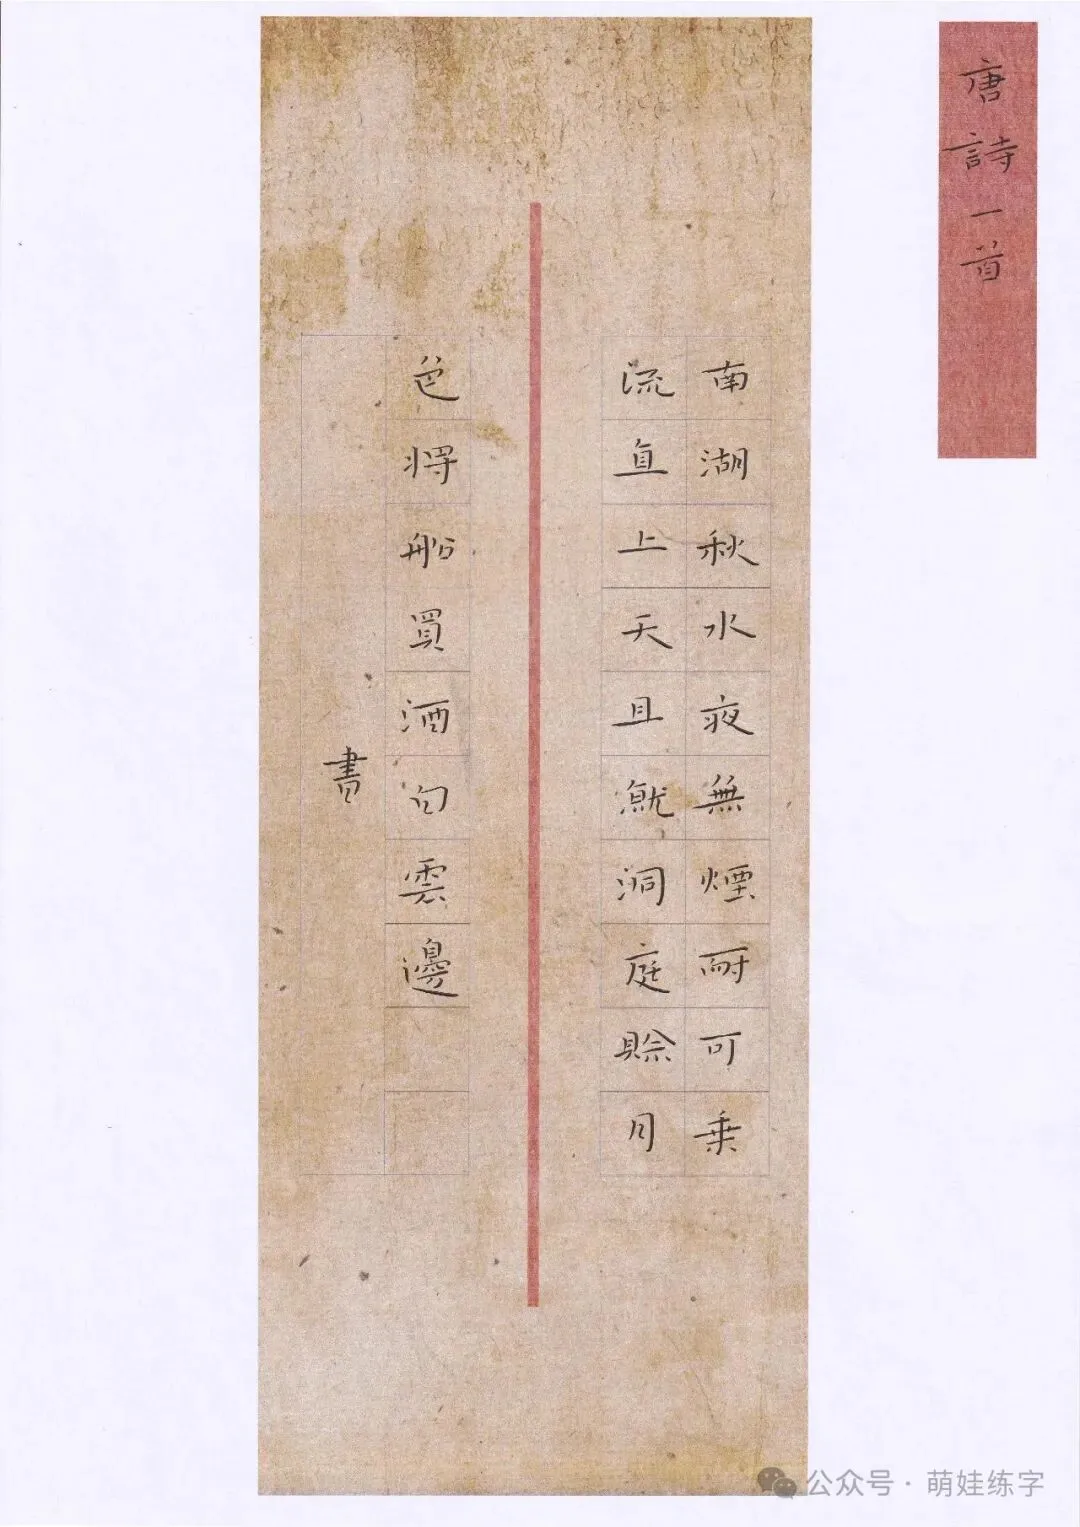 唐詩一首
南湖秋水夜無煙耐可乗
流直上天且就洞庭賒月
色將船買酒白雲邊
書
公众号 · 萌娃练字